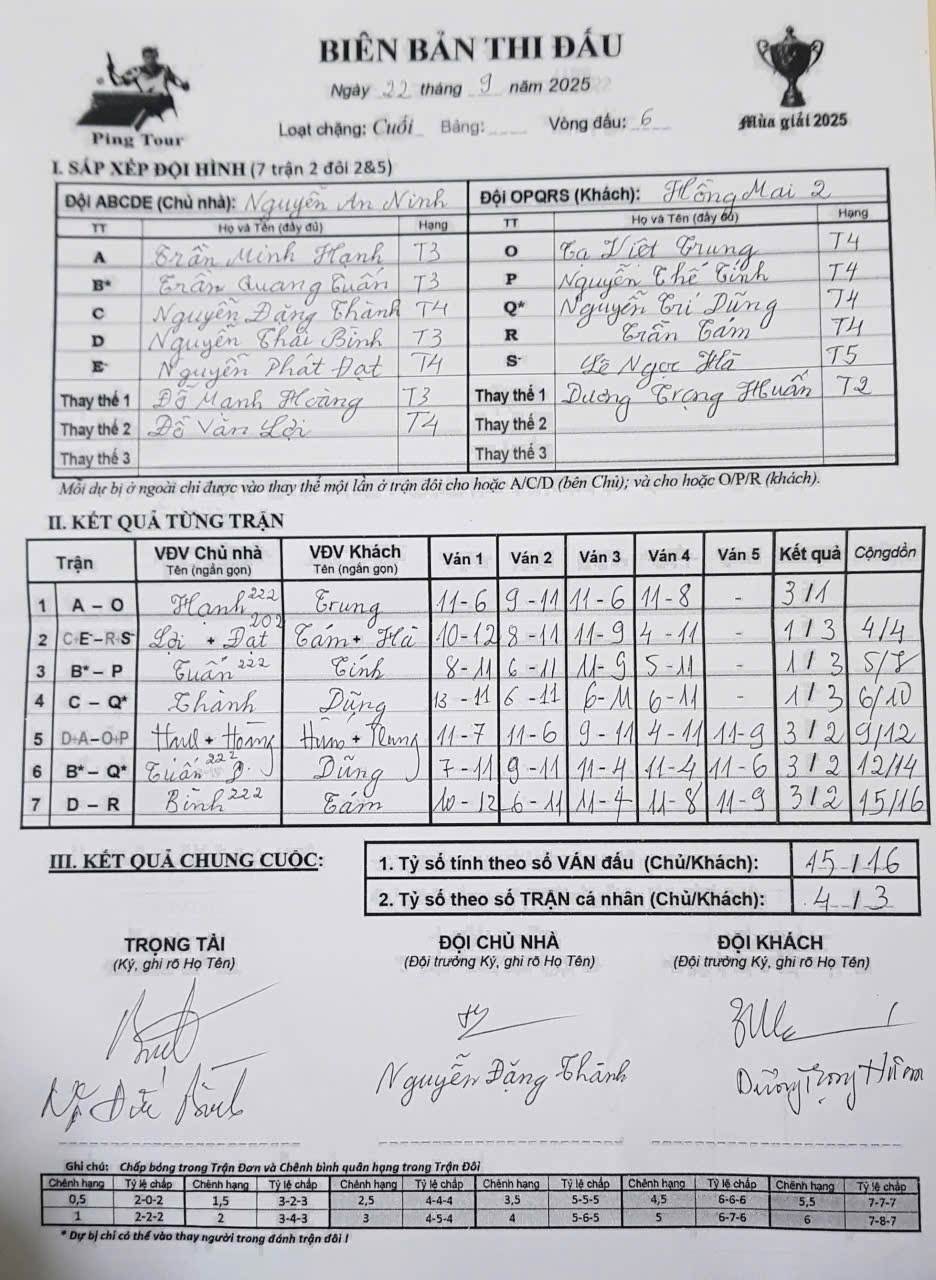 BIÊN BẢN THI ĐẤU
Ngày 22 tháng 9 năm 2025
Ping Tour
Loạt chặng: Cuối Bảng: Vòng đấu: 6
Mùa giải 2025
I. SẮP XẾP ĐỘI HÌNH (7 trận 2 đôi 2&5)
Đội ABCDE (Chủ nhà): Nguyễn An Ninh Đội OPQRS (Khách): Hồng Mai 2
TT Họ và Tên (đầy đủ) Hạng TT Họ và Tên (đầy đủ) Hạng
A Trần Minh Hạnh T3 O Tạ Việt Trung T4
B* Trần Quang Tuấn T3 P Nguyễn Thế Tính T4
C Nguyễn Đặng Thành T4 Q* Nguyễn Trí Dũng T4
D Nguyễn Thái Bình T3 R Trần Tám T4
E- Nguyễn Phát Đạt T4 S- Lê Ngọc Hà T5
Thay thế 1 Đỗ Mạnh Hoàng T3 Thay thế 1 Dương Trọng Huấn T2
Thay thế 2 Đỗ Văn Lợi T4 Thay thế 2
Thay thế 3 Thay thế 3
Mỗi dự bị ở ngoài chỉ được vào thay thế một lần ở trận đôi cho hoặc A/C/D (bên Chủ); và cho hoặc O/P/R (khách).
II. KẾT QUẢ TỪNG TRẬN
Trận VĐV Chủ nhà Tên (ngắn gọn) VĐV Khách Tên (ngắn gọn) Ván 1 Ván 2 Ván 3 Ván 4 Ván 5 Kết quả Cộngdồn
1 A – O Hạnh 222 Trung 11-6 9-11 11-6 11-8 - 3/1
2 C+E-–R+S- Lợi + Đạt 202 Tám + Hà 10-12 8-11 11-9 4-11 - 1/3 4/4
3 B* – P Tuấn 222 Tính 8-11 6-11 11-9 5-11 - 1/3 5/8
4 C – Q* Thành Dũng 13-11 6-11 6-11 6-11 - 1/3 6/10
5 D+A–O+P 11-7 11-6 9-11 4-11 11-9 3/2 9/12
6 B* – Q* Tuấn 222 Dũng 7-11 9-11 11-4 11-4 11-6 3/2 12/14
7 D – R Bình 222 Tám 10-12 6-11 11-4 11-8 11-9 3/2 15/16
III. KẾT QUẢ CHUNG CUỘC:
1. Tỷ số tính theo số VÁN đấu (Chủ/Khách): 15/16
2. Tỷ số theo số TRẬN cá nhân (Chủ/Khách): 4/3
TRỌNG TÀI ĐỘI CHỦ NHÀ ĐỘI KHÁCH
(Ký, ghi rõ Họ Tên) (Đội trưởng Ký, ghi rõ Họ Tên) (Đội trưởng Ký, ghi rõ Họ Tên)
Nguyễn Đặng Thành Dương Trọng Huấn
Ghi chú: Chấp bóng trong Trận Đơn và Chênh bình quân hạng trong Trận Đôi
Chênh hạng Tỷ lệ chấp Chênh hạng Tỷ lệ chấp Chênh hạng Tỷ lệ chấp Chênh hạng Tỷ lệ chấp Chênh hạng Tỷ lệ chấp Chênh hạng Tỷ lệ chấp
0,5 2-0-2 1,5 3-2-3 2,5 4-4-4 3,5 5-5-5 4,5 6-6-6 5,5 7-7-7
1 2-2-2 2 3-4-3 3 4-5-4 4 5-6-5 5 6-7-6 6 7-8-7
* Dự bị chỉ có thể vào thay người trong đánh trận đôi !